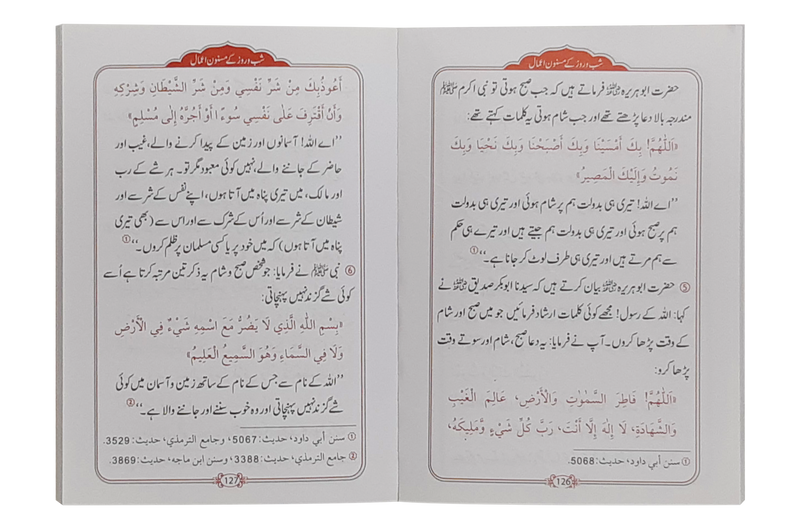 شب و روز کے مسنون اعمال
حضرت ابوہریرہ رضی اللہ عنہ فرماتے ہیں کہ جب صبح ہوتی تو نبی اکرم ﷺ
مندرجہ بالا دعا پڑھتے تھے اور جب شام ہوتی یہ کلمات کہتے تھے:
«اَللّٰهُمَّ! بِكَ أَمْسَيْنَا وَبِكَ أَصْبَحْنَا وَبِكَ نَحْيَا وَبِكَ
نَمُوتُ وَإِلَيْكَ الْمَصِيرُ»
’’اے اللہ! تیری ہی بدولت ہم پر شام ہوئی اور تیری ہی بدولت
ہم پر صبح ہوئی اور تیری ہی بدولت ہم جیتے ہیں اور تیرے ہی حکم
سے ہم مرتے ہیں اور تیری ہی طرف لوٹ کر جانا ہے۔‘‘①
⑤ حضرت ابوہریرہ رضی اللہ عنہ بیان کرتے ہیں کہ سیدنا ابوبکر صدیق رضی اللہ عنہ نے
کہا: اللہ کے رسول! مجھے کوئی کلمات ارشاد فرمائیں جو میں صبح اور شام
کے وقت پڑھا کروں۔ آپ نے فرمایا: یہ دعا صبح، شام اور سوتے وقت
پڑھا کرو:
«اَللّٰهُمَّ! فَاطِرَ السَّمٰوٰتِ وَالْأَرْضِ، عَالِمَ الْغَيْبِ
وَالشَّهَادَةِ، لَا إِلٰهَ إِلَّا أَنْتَ، رَبَّ كُلِّ شَيْءٍ وَّمَلِيكَهُ،
① سنن أبي داود، حديث: 5068.
126
شب و روز کے مسنون اعمال
أَعُوذُ بِكَ مِنْ شَرِّ نَفْسِي وَمِنْ شَرِّ الشَّيْطَانِ وَشِرْكِهِ
وَأَنْ أَقْتَرِفَ عَلٰى نَفْسِي سُوءًا أَوْ أَجُرَّهُ إِلٰى مُسْلِمٍ»
’’اے اللہ! آسمانوں اور زمین کے پیدا کرنے والے، غیب اور
حاضر کے جاننے والے، نہیں کوئی معبود مگر تو۔ ہر شے کے رب
اور مالک، میں تیری پناہ میں آتا ہوں، اپنے نفس کے شر سے اور
شیطان کے شر سے اور اُس کے شرک سے اور اس سے (بھی تیری
پناہ میں آتا ہوں) کہ میں خود پر یا کسی مسلمان پر ظلم کروں۔‘‘①
⑥ نبی ﷺ نے فرمایا: جو شخص صبح و شام یہ ذکر تین مرتبہ کرتا ہے اُسے
کوئی شے گزند نہیں پہنچاتی:
«بِسْمِ اللّٰهِ الَّذِي لَا يَضُرُّ مَعَ اسْمِهِ شَيْءٌ فِي الْأَرْضِ
وَلَا فِي السَّمَاءِ وَهُوَ السَّمِيعُ الْعَلِيمُ»
’’اللہ کے نام سے جس کے نام کے ساتھ زمین و آسمان میں کوئی
شے گزند نہیں پہنچاتی اور وہ خوب سننے اور جاننے والا ہے۔‘‘②
① سنن أبي داود، حديث: 5067، وجامع الترمذي، حديث: 3529.
② جامع الترمذي، حديث: 3388، وسنن ابن ماجه، حديث: 3869.
127